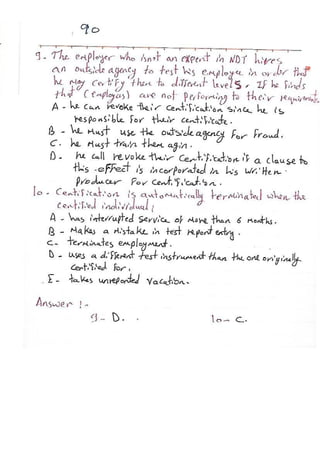 90
9- The employer who isn't an expert in NDT hires
an outside agency to test his employe in order that
he may certify them to different levels, If he finds
that (employes) are not performing to their requirements
A - he can revoke their certification since he is
responsible for their certificate.
B - he Must use the outside agency For Fraud.
C. he Must train them agin.
D. he call revoke their Certification if a clause to
this effect is incorporated in his written
producer For certification.
10- Certification is automatically terminated when the
certified individual:
A - has interrupted service of More than 6 months.
B - Makes a Mistake in test report entry.
C- terminates employment.
D - uses a different test instrument than the one originally
certified for.
E- takes unreported vacation.
Answer :-
9- D. 10- C.